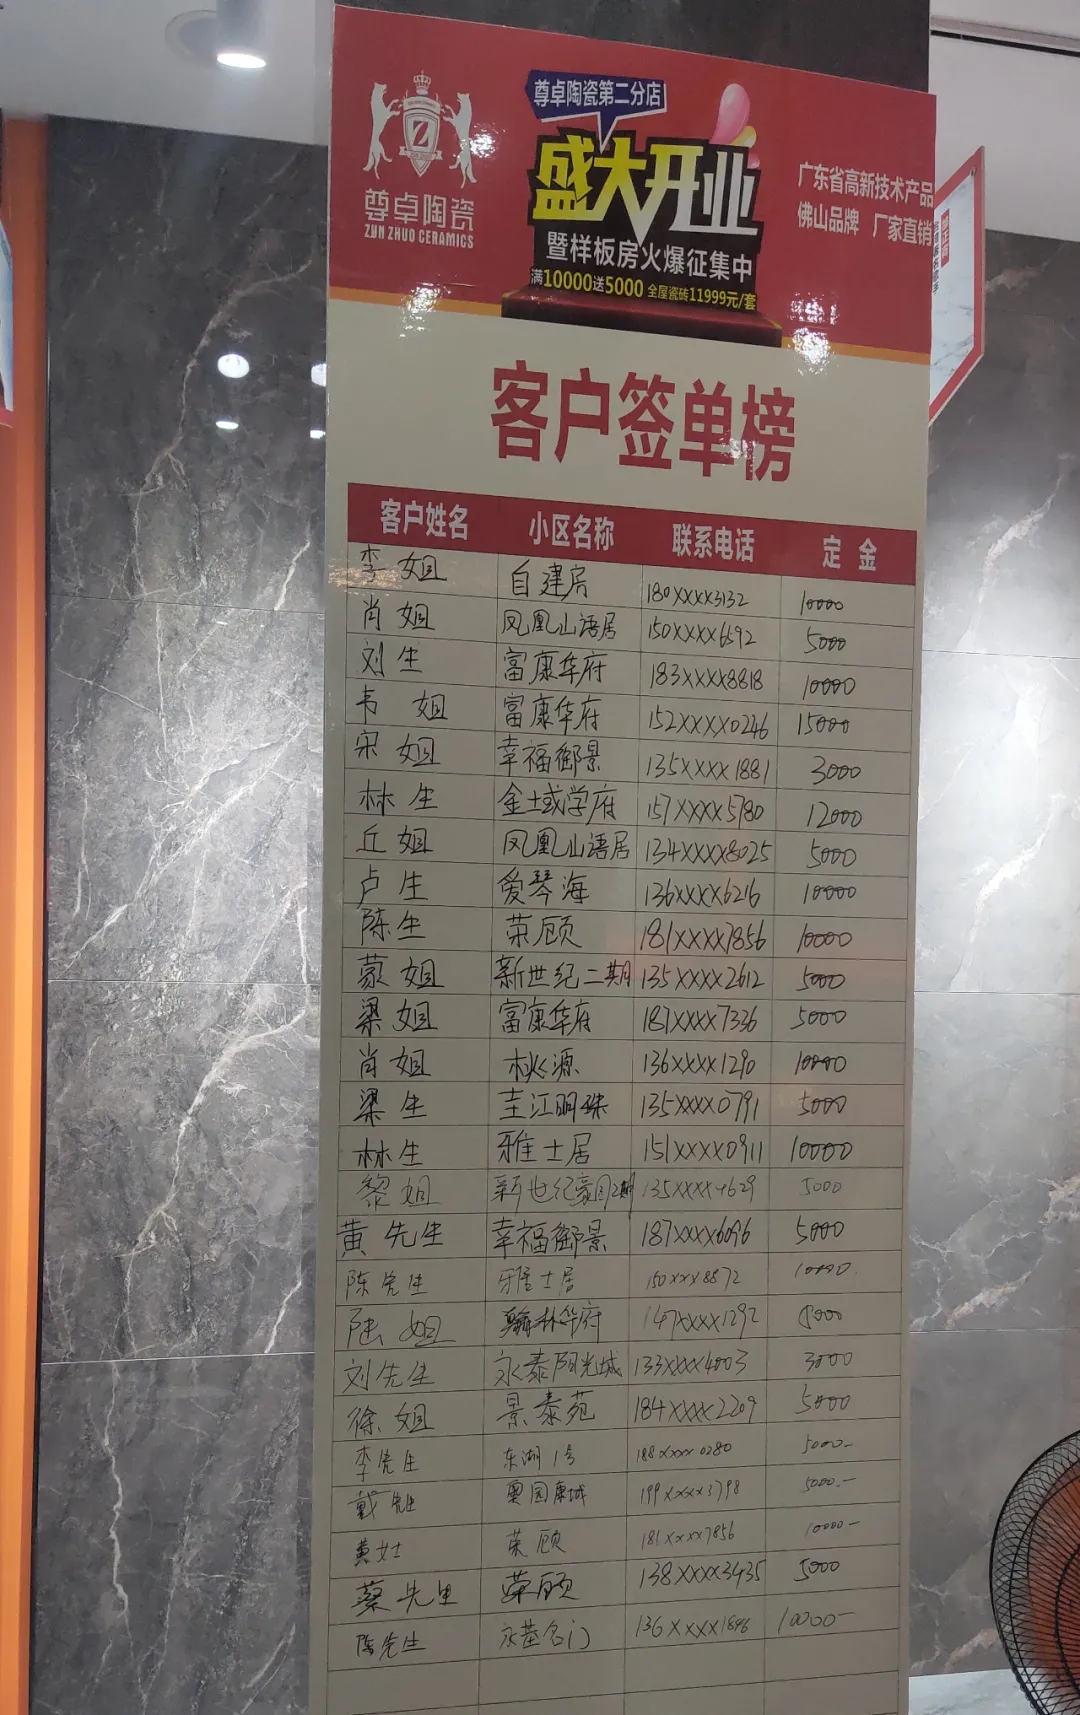 尊卓陶瓷
ZUN ZHUO CERAMICS
尊卓陶瓷第二分店
盛大开业
暨样板房火爆征集中
满10000送5000 全屋瓷砖11999元/套
广东省高新技术产品
佛山品牌 厂家直销
客户签单榜
客户姓名 小区名称 联系电话 定金
李姐 自建房 180XXXX3132 10000
肖姐 凤凰山语居 150XXXX6592 5000
刘生 富康华府 183XXXX8818 10000
韦姐 富康华府 152XXXX0246 15000
宋姐 幸福御景 135XXXX1881 3000
林生 金域学府 157XXXX5780 12000
丘姐 凤凰山语居 134XXXX8025 5000
卢生 爱琴海 136XXXX6216 10000
陈生 荣顾 181XXXX7856 10000
蒙姐 新世纪二期 135XXXX2612 5000
梁姐 富康华府 187XXXX7336 5000
肖姐 桃源 136XXXX1290 10000
梁生 圭江明珠 135XXXX0791 5000
林生 雅士居 151XXXX0911 10000
黎姐 新世纪豪园2期 135XXXX4629 5000
黄先生 幸福御景 187XXXX6096 5000
陈先生 雅士居 150XXX8872 10000
陆姐 翰林华府 147XXXX1292 5000
刘先生 永泰阳光城 133XXXX4003 3000
徐姐 景泰苑 184XXXX2209 5000
李先生 东湖1号 188XXXX0280 5000-
戴先生 199XXXX3798 5000-
黄 荣顾 181XXXX7856 10000-
蔡先生 荣顾 138XXXX3435 5000
陈先生 永基名门 136XXXX1896 10000-